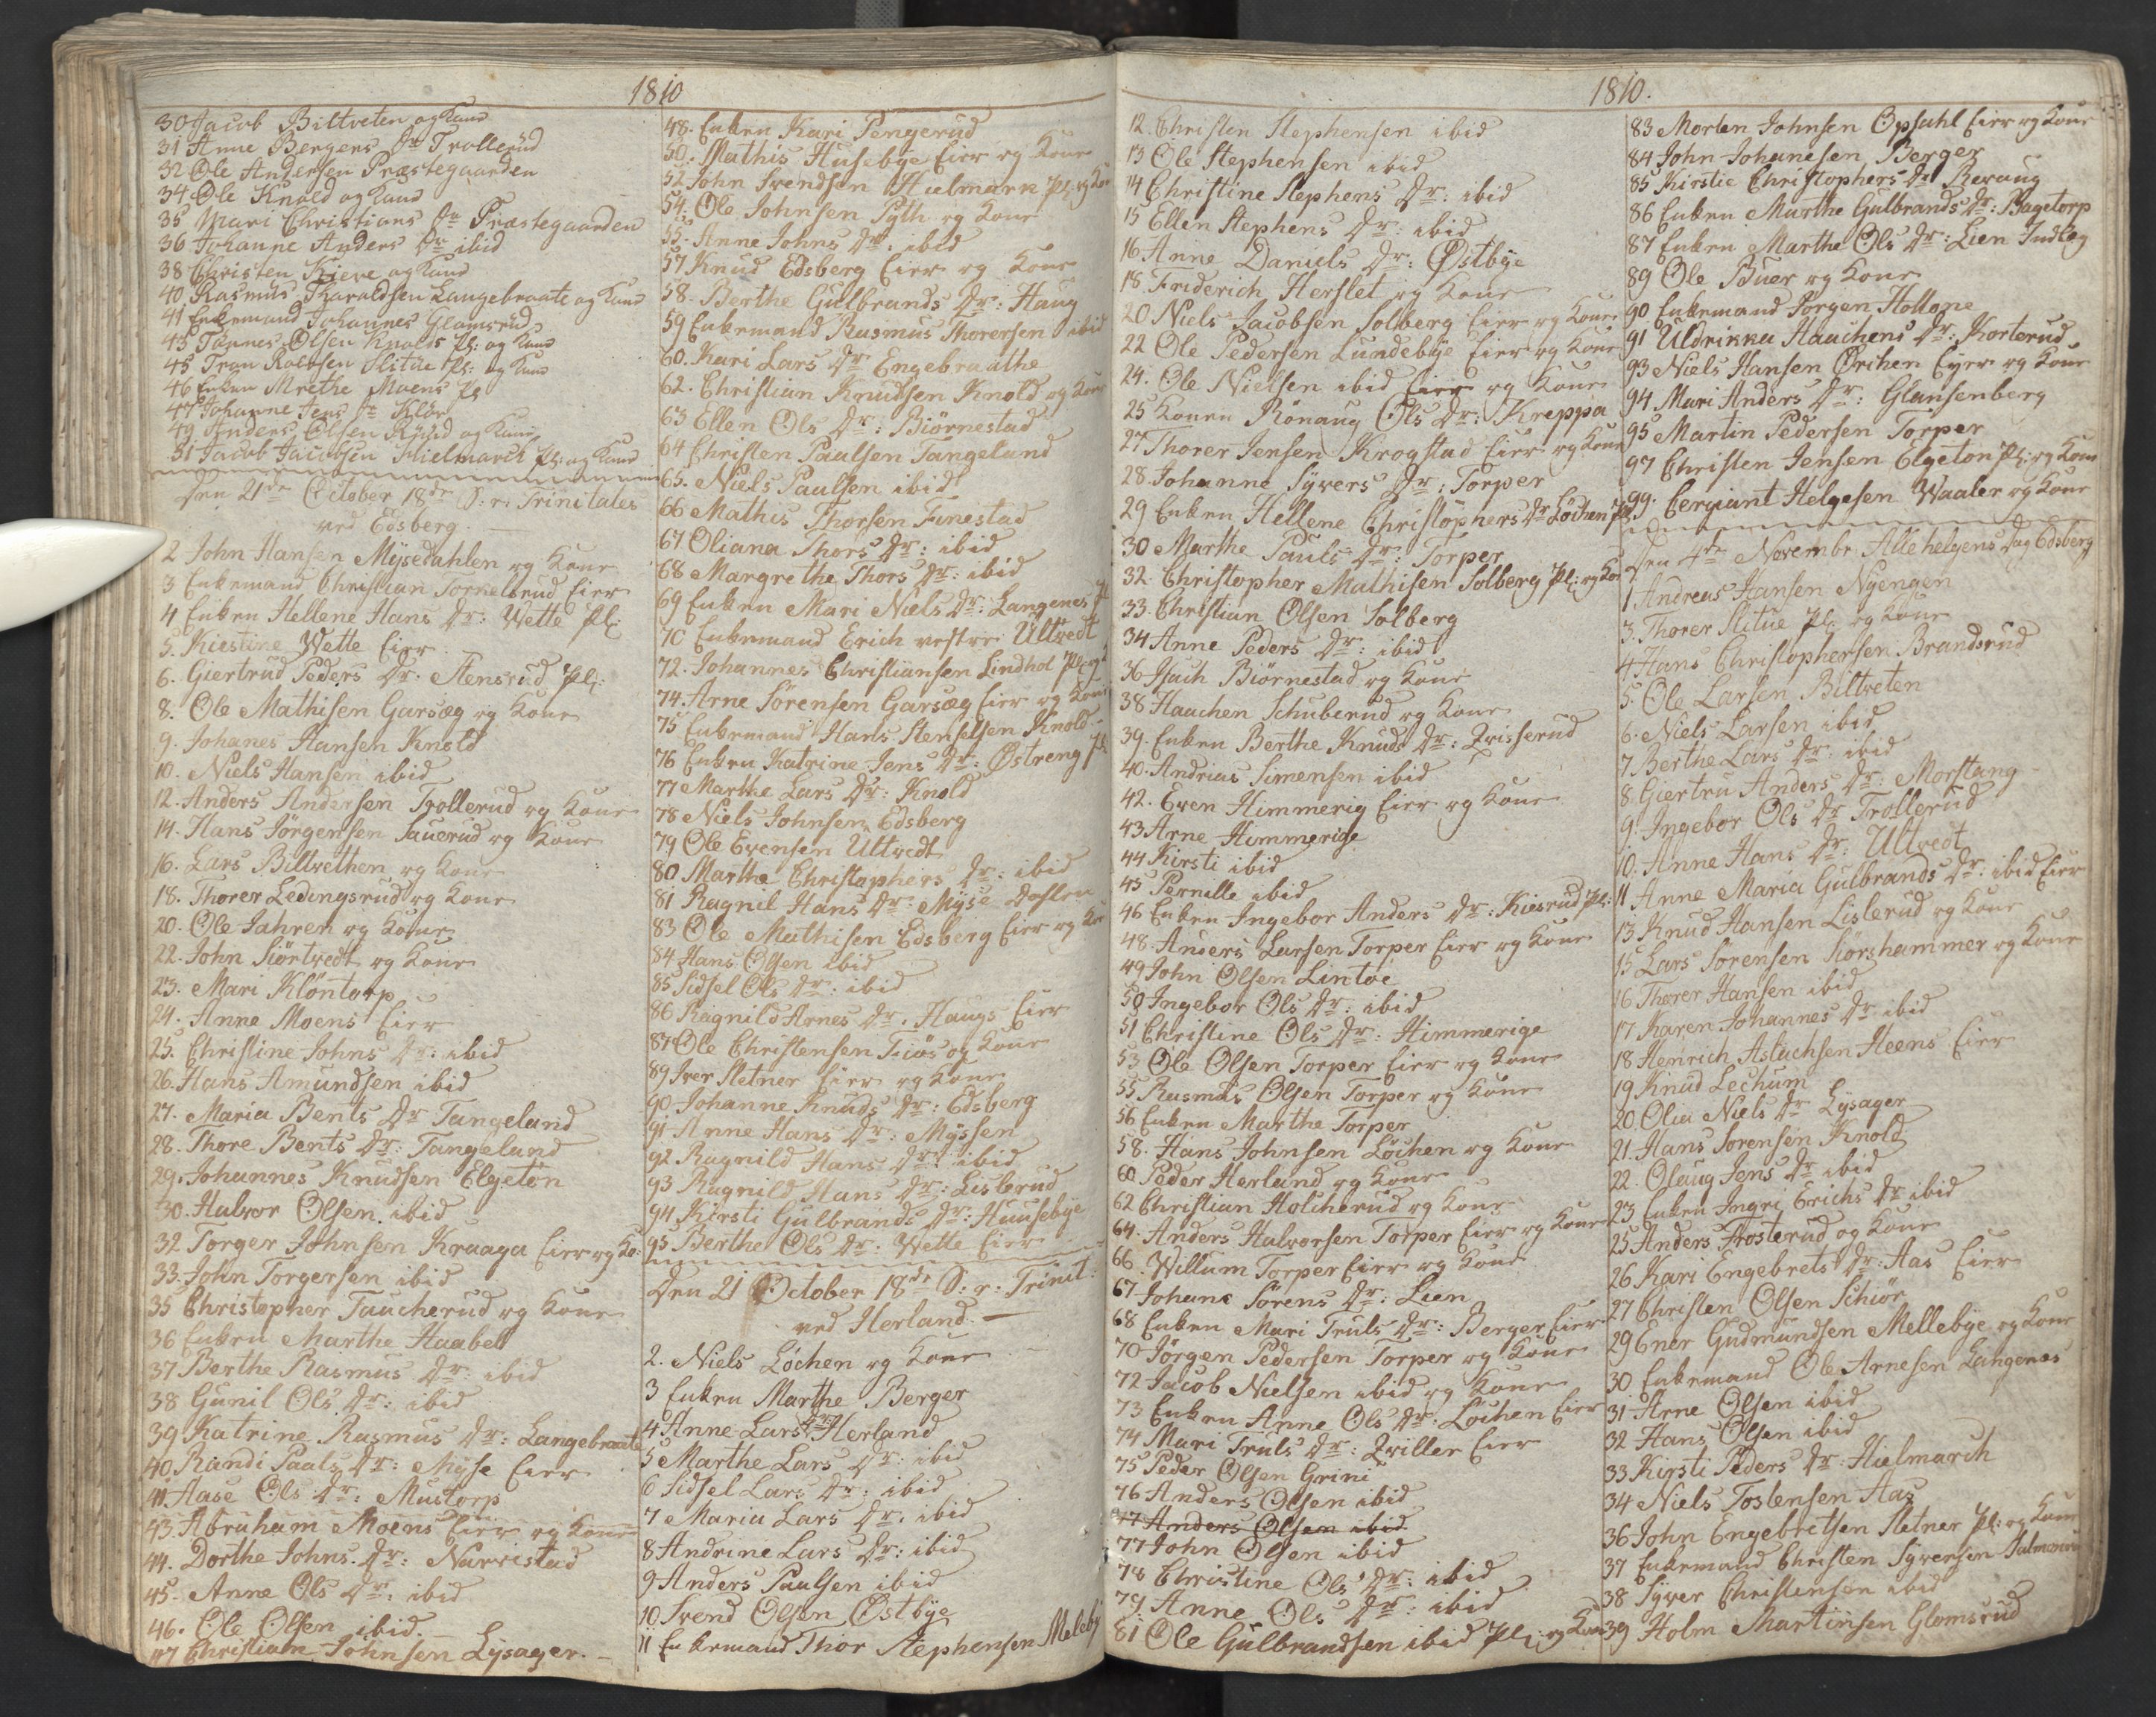 1810
30 Jacob Biltveten og Kune
31 Anne Bergers Dr Trollerud
32 Ole Andersen Præstegaarden
34 Ole Knold og Kune
35 Mari Christians Dr Præstegaarden
36 Johanne Anders Dr ibid
38 Christen Kieve og Kune
40 Rasmus Haraldsen Langebraate og Kune
41 Enkemand Johannes Glomsrud
43 Tannes Olsen Knold Pl: og Kune
45 Tron Slitue Pl: og Kune
46 Enken Mrethe Moens Pl
47 Johanne Jens Dr
49 Anders Olsen og Kune
51 Jacob Jacobsen Hielmarck Pl: og Kune
Den 21de October 18de S: r: Trinitates
ved Edsberg.
2 John Hansen Mysedahlen og Kone
3 Enkemand Christian Torkelsrud Eier
4 Enken Hellene Hans Dr: Wette Pl:
5. Kiestine Wette Eier
6. Giertrud Peders Dr. Stensrud Pl:
8. Ole Mathisen Garsæg og Kone
9. Johanes Hansen Knold
10. Niels Hansen ibid
12. Anders Andersen Trollerud og Kone
14. Hans Jörgensen Sauerud og Kone
16. Lars Biltvethen og Kone
18. Thorer Ledingsrud og Kone
20. Ole Jahren og Kone
22. John Siörtvedt og Kone
23. Mari Klöntorp
24. Anne Moens Eier
25. Christine Johns Dr: ibid
26. Hans Amundsen ibid
27. Maria Bents Dr Tangeland
28. Thore Bents Dr: Tangeland
29. Johannes Knudsen Elgeton
30. Halvor Olsen ibid
32 Torger Johnsen Kraaga Eier og Ko:
33. John Torgersen ibid
35 Christopher Taucherud og Kone
36 Enken Marthe Haabel
37 Berthe Rasmus Dr: ibid
38 Gunil Ols Dr: ibid
39 Katrine Rasmus Dr: Langebraate
40. Randi Paals Dr: Myse Eier
41. Aase Ols Dr: Mustorp
43. Abraham Moens Eier og Kone
44. Dorthe Johns Dr: Narvestad
45. Anne Ols Dr: ibid
46. Ole Olsen ibid.
47 Christian Johnsen Lysager.
48. Enken Kari Pengerud
50. Mathis Husebye Eier og Kone
52. John Svendsen Hielmark Pl: og Kon
54. Ole Johnsen Pyth og Kone
55. Anne Johns Dr: ibid
57 Knud Edsberg Eier og Kone
58. Berthe Gulbrands Dr: Haug
59 Enkemand Rasmus Thorersen ibid
60. Kari Lars Dr Engebraathe
62. Christian Knudsen Knold og Kone
63 Ellen Ols Dr: Biörnestad
64 Christen Paulsen Tangeland
65. Niels Paulsen ibid
66 Mathis Thorsen Finestad
67 Oliana Thors Dr: ibid
68 Margrethe Thors Dr: ibid
69 Enken Mari Niels Dr: Langenes Pl
70 Enkemand Erich vestre Ultvedt
72. Johannes Christiansen Lindhol Pl: og
74. Arne Sörensen Garsæg Eier og Kone
75 Enkemand Hans Stenselsen Knold
76 Enken Katrine Jens Dr: Østreng Pl
77 Marthe Lars Dr: Knold
78 Niels Johnsen Edsberg
79 Ole Evensen Ultvedt
80 Marthe Christophers Dr: ibid
81 Ragnil Hans Dr: Myse Dahlen
83 Ole Mathisen Edsberg Eier og Ko
84 Hans Olsen ibid
85 Sidsel Ols Dr: ibid
86 Ragnild Arnes Dr. Haugs Eier
87 Ole Christensen Fiös og Kone
89 Iver Sletner Eier og Kone
90 Johanne Knuds Dr: Edsberg
91 Anne Hans Dr: Myssen
92 Ragnild Hans Dr: ibid
93 Ragnild Hans Dr: Lislerud
94. Kirsti Gulbrands Dr: Huusebye
95 Berthe Ols Dr: Wette Eier
Den 21 October 18de S: r: Trinit:
ved Herland.
2. Niels Löchen og Kone
3 Enken Marthe Berger
4 Anne Lars Dr: Herland
5 Marthe Lars Dr: ibid
6 Sidsel Lars Dr: ibid
7 Maria Lars Dr: ibid
8 Andrine Lars Dr: ibid
9 Anders Paulsen ibid
10 Svend Olsen Østbye
11 Enkemand Thor Stephensen Meleby
1810.
12. Christen Stephensen ibid
13 Ole Stephensen ibid
14 Christine Stephens Dr: ibid
15 Ellen Stephens Dr: ibid
16 Anne Daniels Dr: Østbye
18. Friderich Herslet og Kone
20 Niels Jacobsen Solberg Eier og Kone
22 Ole Pedersen Lundebye Eier og Kone
24. Ole Nielsen ibid Eier og Kone
25 Konen Rönaug Ols Dr: Kreppa
27 Thorer Jensen Krogstad Eier og Kone
28. Johanne Syvers Dr: Torper
29 Enken Hellene Christophers Dr Löchen Pl
30 Marthe Pauls Dr: Torper
32. Christopher Mathisen Solberg Pl: og Ko
33. Christian Olsen Solberg
34 Anne Peders Dr: ibid
36 Isach Biörnestad og Kone
38 Haachen Schuberud og Kone
39. Enken Berthe Knuds Dr: Qvisserud
40. Andrias Simensen ibid
42. Even Himmerig Eier og Kone
43 Arne Himmerige
44 Kirsti ibid
45 Pernille ibid
46 Enken Ingebor Anders Dr: Kiesrud Pl:
48. Anders Larsen Torper Eier og Kone
49 John Olsen Lintoe
50 Ingebor Ols Dr: ibid
51 Christine Ols Dr: Himmerige
53 Ole Olsen Torper Eier og Kone
55 Rasmus Olsen Torper og Kone
56 Enken Marthe Torper
58. Hans Johnsen Löchen og Kone
60 Peder Herland og Kone
62 Christian Holcherud og Kone
64. Anders Halvorsen Torper Eier og Kone
66. Willum Torper Eier og Kone
67 Johane Sörens Dr: Lien
68 Enken Mari Truls Dr: Berger Eier
70 Jörgen Pedersen Torper og Kone
72 Jacob Nielsen ibid og Kone
73 Enken Anne Ols Dr: Löchen Eier
74 Mari Truls Dr: Qviller Eier
75 Peder Olsen Grini
76 Anders Olsen ibid
77 Anders Olsen ibid
77 John Olsen ibid
78 Christine Ols Dr: ibid
79 Anne Ols Dr: ibid
81 Ole Gulbrandsen ibid Pl: og Kone
83 Morten Johnsen Opsahl Eier og Kone
84 John Johanesen Berger
85 Kirstie Christophers Dr Beraug
86 Enken Marthe Gulbrands Dr: Bagetorp
87 Enken Marthe Ols Dr: Lien Indlæg
89 Ole Buer og Kone
90 Enkemand Jörgen Hollane
91 Uldrikka Haachens Dr: Korterud
93 Niels Hansen Örchen Eyer og Kone
94 Mari Anders Dr: Glansenberg
95 Martin Pedersen Torper
97 Christen Jensen Elgeton Pl: og Kone
99. Cerjiant Helgesen Waaler og Kone
Den 4de Novembr Allehelgens Dag Edsberg
1 Andreas Hansen Nyengen
3. Thorer Slitue Pl: og Kone
4 Hans Christophersen Brandsrud
5. Ole Larsen Biltveten
6. Niels Larsen ibid
7 Berthe Lars Dr: ibid
8 Giertru Anders Dr: Morstang
9. Ingebor Ols Dr Trollerud
10. Anne Hans Dr: Ultvedt
11 Anne Maria Gulbrands Dr: ibid Eier
13 Knud Hansen Lislerud og Kone
15 Lars Sorensen Siörshammer og Kone
16 Thorer Hansen ibid
17 Karen Johannes Dr ibid
18 Henrich Aslachsen Steens Eier
19 Knud Lechum
20. Olea Niels Dr Lysager
21. Hans Sorensen Knold
22. Olaug Jens Dr ibid
23 Enken Ingri Erichs Dr ibid
25 Anders Frosterud og Kone
26 Kari Engebrets Dr: Aas Eier
27 Christen Olsen Schiör
29 Ener Gudmundsen Mellebye og Kone
30 Enkemand Ole Arnesen Langenæs
31 Arne Olsen ibid
32 Hans Olsen ibid
33 Kirsti Peders Dr: Hielmarch
34 Niels Tostensen Aas
36 John Engebretsen Sletner Pl: og Kone
37 Enkemand Christen Syversen
38 Syver Christensen ibid
39 Holm Martinsen Glomsrud